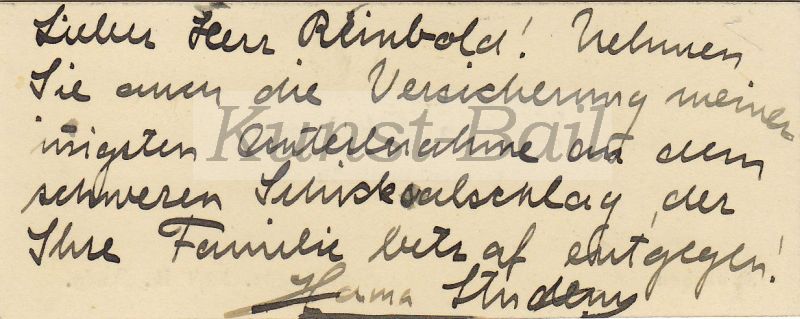 Lieber Herr Reinbold! Nehmen
Sie auch die Versicherung meiner
innigsten Anteilnahme an dem
schweren Schicksalschlag, der
Ihre Familie betraf entgegen!
Kunst-Bail